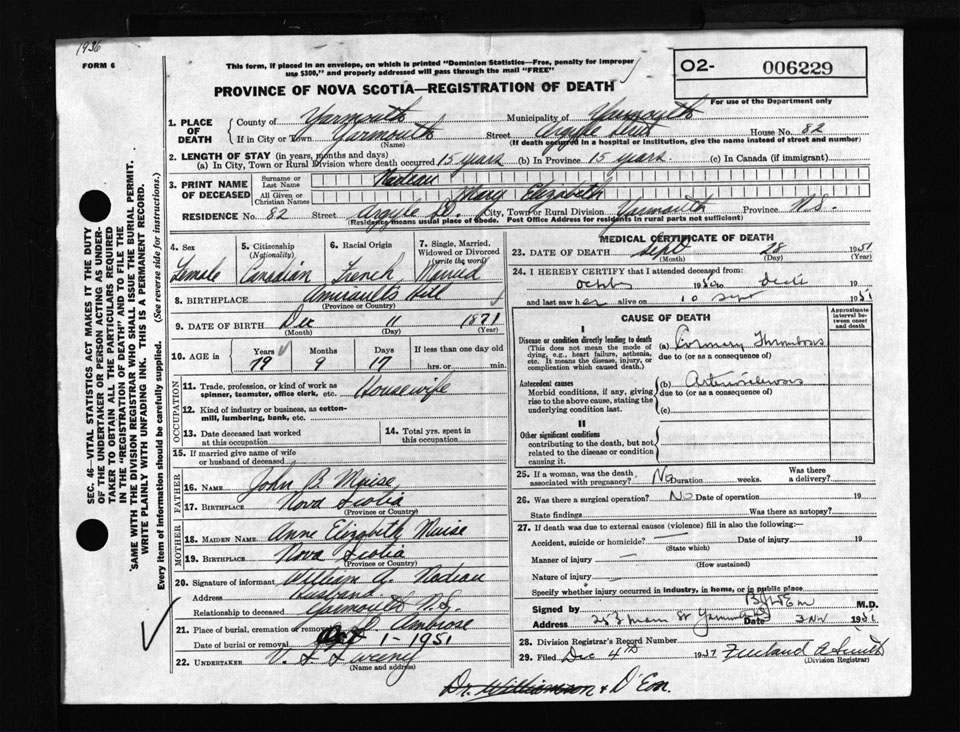 1936
FORM 6
This form, if placed in an envelope, on which is printed "Dominion Statistics—Free, penalty for improper
use $300," and properly addressed will pass through the mail "FREE"
PROVINCE OF NOVA SCOTIA—REGISTRATION OF DEATH
O2- 006229
For use of the Department only
1. PLACE OF DEATH County of Yarmouth Municipality of Yarmouth
If in City or Town Yarmouth Street Argyle Street House No. 82
(Name) (If death occurred in a hospital or institution, give the name instead of street and number)
2. LENGTH OF STAY (in years, months and days)
(a) In City, Town or Rural Division where death occurred 15 years (b) In Province 15 years. (c) In Canada (if immigrant)
3. PRINT NAME OF DECEASED Surname or Last Name Nadeau
All Given or Christian Names Mary Elizabeth
RESIDENCE No. 82 Street Argyle St. City, Town or Rural Division Yarmouth Province N.S.
(Residence means usual place of abode. Post Office Address for residents in rural parts not sufficient)
4. Sex 5. Citizenship (Nationality) 6. Racial Origin 7. Single, Married, Widowed or Divorced (write the word)
Female Canadian French Married
8. BIRTHPLACE Amirault's Hill
(Province or Country)
9. DATE OF BIRTH Dec 11 1871
(Month) (Day) (Year)
10. AGE in Years Months Days If less than one day old
79 9 17 hrs. or min.
OCCUPATION
11. Trade, profession, or kind of work as
spinner, teamster, office clerk, etc. Housewife
12. Kind of industry or business, as cotton-
mill, lumbering, bank, etc.
13. Date deceased last worked
at this occupation
14. Total yrs. spent in
this occupation
15. If married give name of wife
or husband of deceased
FATHER
16. NAME John B. Muise
17. BIRTHPLACE Nova Scotia
(Province or Country)
MOTHER
18. MAIDEN NAME Anne Elizabeth Muise
19. BIRTHPLACE Nova Scotia
(Province or Country)
20. Signature of informant William A. Nadeau
Address Husband
Relationship to deceased Yarmouth N.S.
21. Place of burial, cremation or removal St Ambrose
Date of burial or removal Oct 1-1951
22. UNDERTAKER V. L. Sweeny
(Name and address)
MEDICAL CERTIFICATE OF DEATH
23. DATE OF DEATH Sept 28 1951
(Month) (Day) (Year)
24. I HEREBY CERTIFY that I attended deceased from:
and last saw her alive on 10 Sept 1951
CAUSE OF DEATH
Approximate interval between onset and death
I
Disease or condition directly leading to death
(This does not mean the mode of
dying, e.g., heart failure, asthenia,
etc. It means the disease, injury, or
complication which caused death.)
(a) Coronary Thrombosis
due to (or as a consequence of)
Antecedent causes
Morbid conditions, if any, giving
rise to the above cause, stating the
underlying condition last.
(b) Arteriosclerosis
due to (or as a consequence of)
(c)
II
Other significant conditions
contributing to the death, but not
related to the disease or condition
causing it.
25. If a woman, was the death
associated with pregnancy? No Duration weeks. Was there a delivery?
26. Was there a surgical operation? No Date of operation 19
State findings Was there an autopsy?
27. If death was due to external causes (violence) fill in also the following:—
Accident, suicide or homicide? — Date of injury 19
(State which)
Manner of injury —
(How sustained)
Nature of injury —
Specify whether injury occurred in industry, in home, or in public place
Signed by M.D.
Address Main St Yarmouth Date 1951
28. Division Registrar's Record Number
29. Filed Dec 4th 1951
(Division Registrar)
Dr. Williamson & D'Eon.
SEC. 46—VITAL STATISTICS ACT MAKES IT THE DUTY
OF THE UNDERTAKER OR PERSON ACTING AS UNDER-
TAKER TO OBTAIN ALL THE PARTICULARS REQUIRED
IN THE "REGISTRATION OF DEATH" AND TO FILE THE
SAME WITH THE DIVISION REGISTRAR WHO SHALL ISSUE THE BURIAL PERMIT.
WRITE PLAINLY WITH UNFADING INK. THIS IS A PERMANENT RECORD.
Every item of information should be carefully supplied. (See reverse side for instructions.)